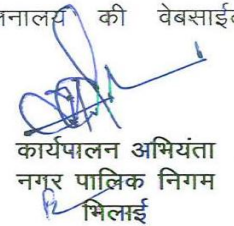 की वेबसाईट
कार्यपालन अभियंता
नगर पालिक निगम
भिलाई